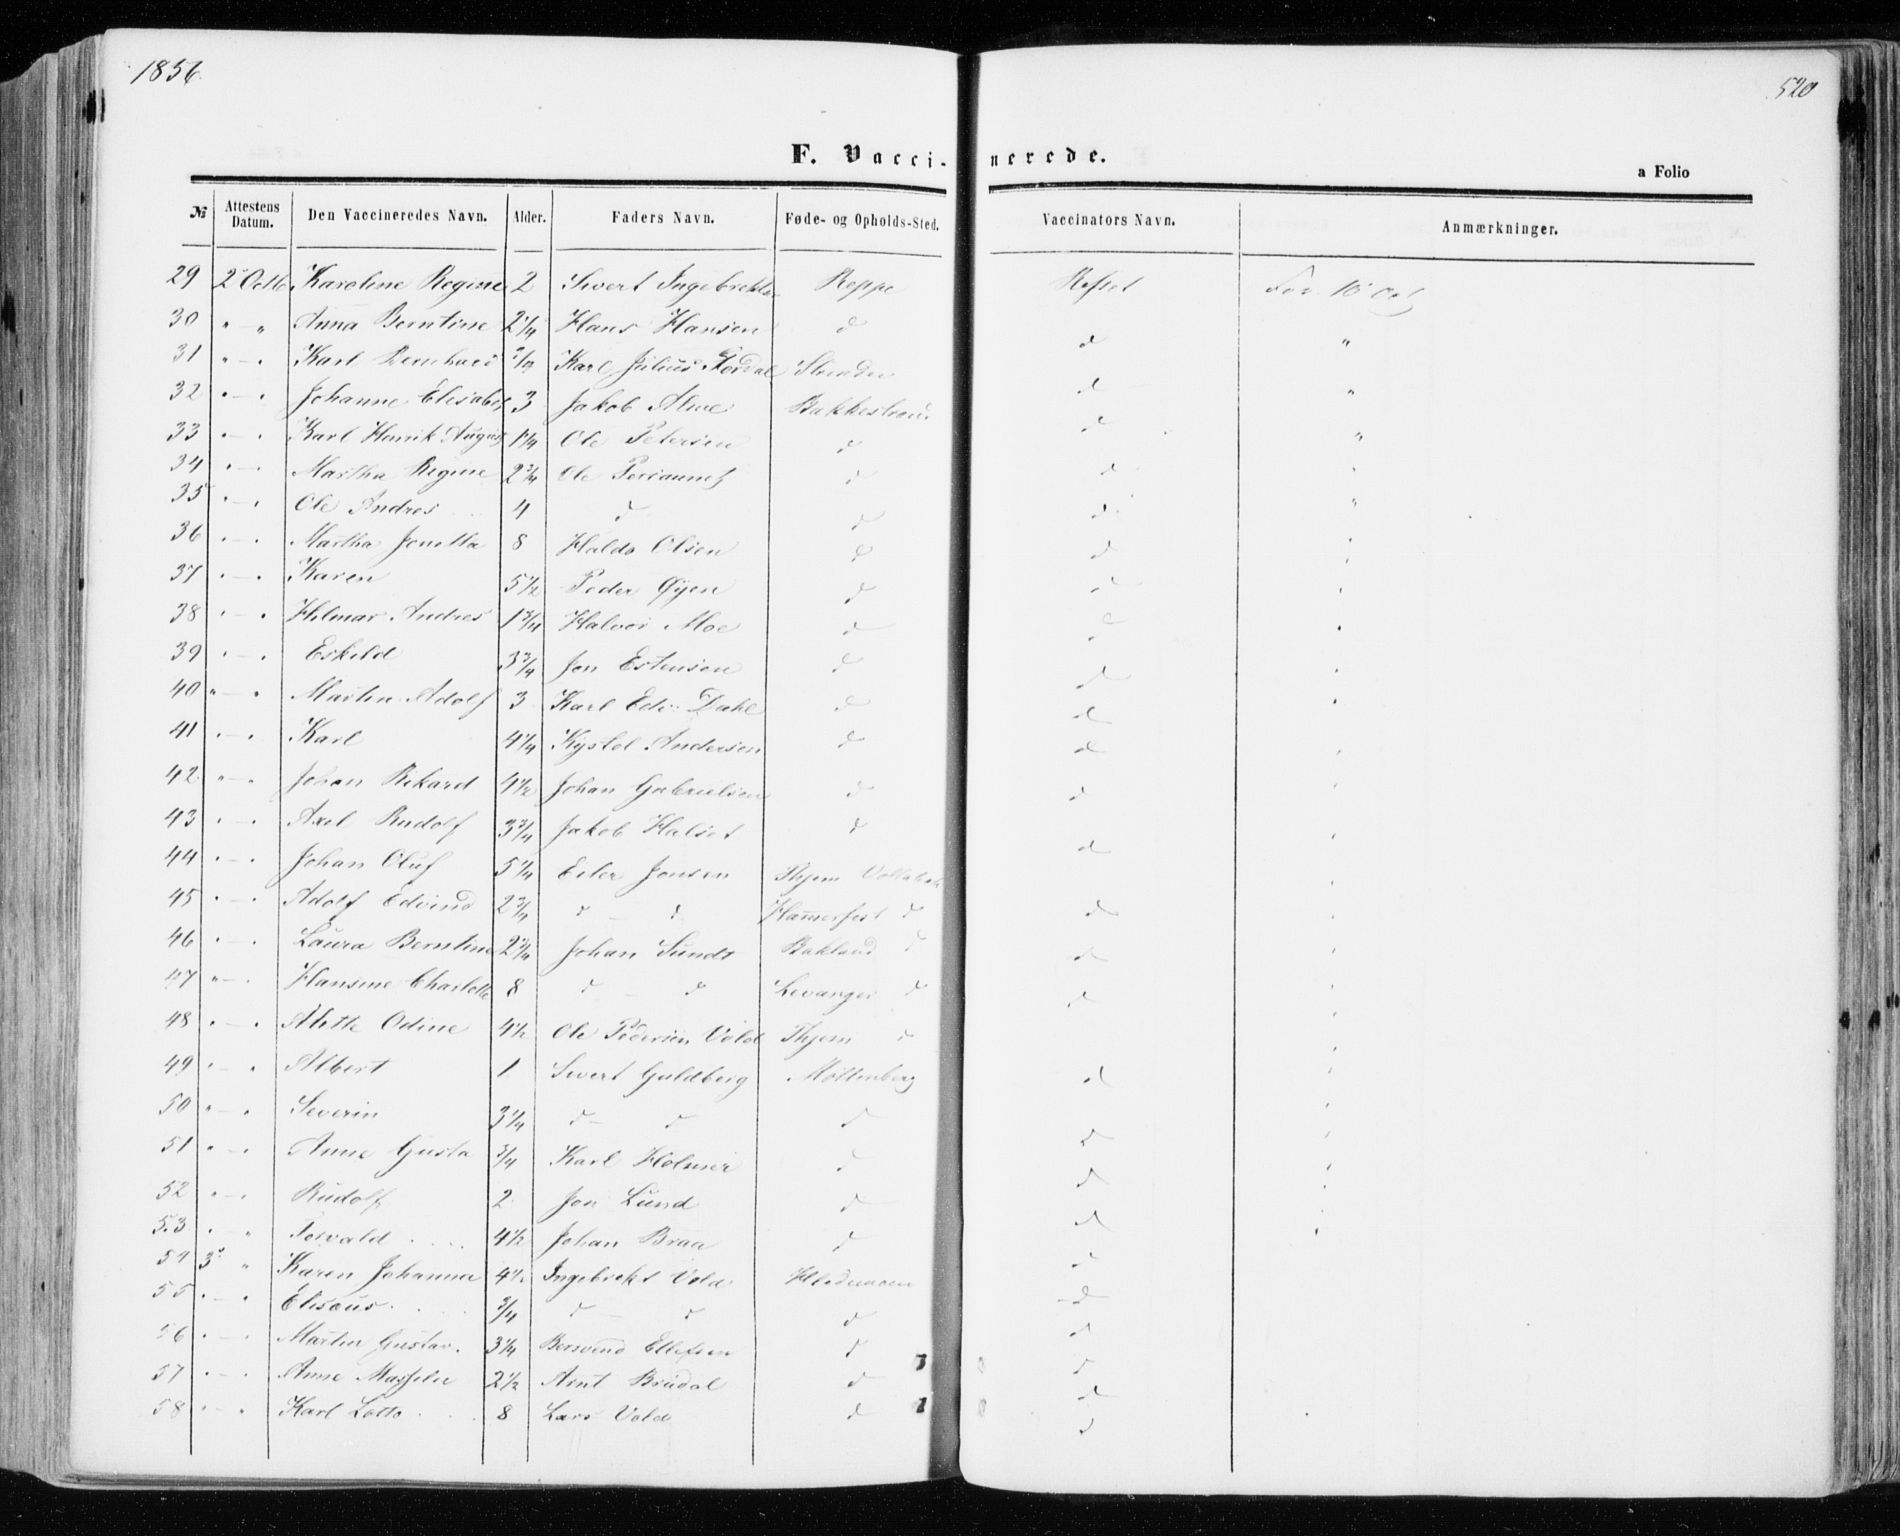 1856.
520
F. Vaccinerede.
a Folio
№ Attestens Datum. Den Vaccineredes Navn. Alder. Faders Navn. Føde- og Opholds-Sted. Vaccinators Navn. Anmærkninger.
29 2 Octb Karoline Regine 2 Sivert Ingebrektsen Reppe 10 Oct
30 " — " Anna Berntine 2 1/4 Hans Hansen d d "
31 " — " Karl Bernhard Karl Julius d "
32 " — " Johanne Elisabet 3 Jakob Alme Bakkestrand d "
33 " — " Karl Henrik August 1 1/4 Ole Petersen d d "
34 " — " Martha Regine 2 3/4 Ole d d "
35 " — " Ole Andres 4 d d d "
36 " — " Martha Jonetta 8 Haldo Olsen d d "
37 " — " Karen 5 1/2 Peder Øyen d d "
38 " — " Hilmar Andres 1 3/4 Halvor Moe d d "
39 " — " Eskild 3 3/4 Jon Estensen d d "
40 " — " Martin Adolf 3 Karl Edv. Dahl d d "
41 " — " Karl 4 1/4 Kystol Andersen d d "
42 " — " Johan Rikard 4 1/2 Johan Gabrielsen d d "
43 " — " Axel Rudolf 3 3/4 Jakob Halset d d "
44 " — " Johan Oluf 5 1/4 Eiler Jonsen Thjem d "
45 " — " Adolf Edvind 2 3/4 d — d Hamerfest d d "
46 " — " Laura Berntine 2 3/4 Johan Sundt Bakland d d "
47 " — " Hansine Charlotte 8 d — d Levanger d d "
48 " — " Mette Odine 4 1/2 Ole Pedersen Vold Thjem d "
49 " — " Albert 1 Sivert Guldberg Møllenberg d "
50 " — " Severin 3 1/4 d — d d d "
51 " — " Anne Gusta 3/4 Karl Holmer d d "
52 " — " Rudolf 2 Jon Lund d d "
53 " — " Tosvald 4 1/2 Johan Braa d d "
54 3 " Karen Johanna 4 1/2 Ingebrekt Vold d
55 " — " Eliseus 3/4 d — d d d
56 " — " Martin Gustav. 3 1/4 Bersvend Ellefsen d d
57 " — " Anne 2 1/2 Arnt Brudal d d
58 " — " Karl Lotto 8 Lars Vold d d